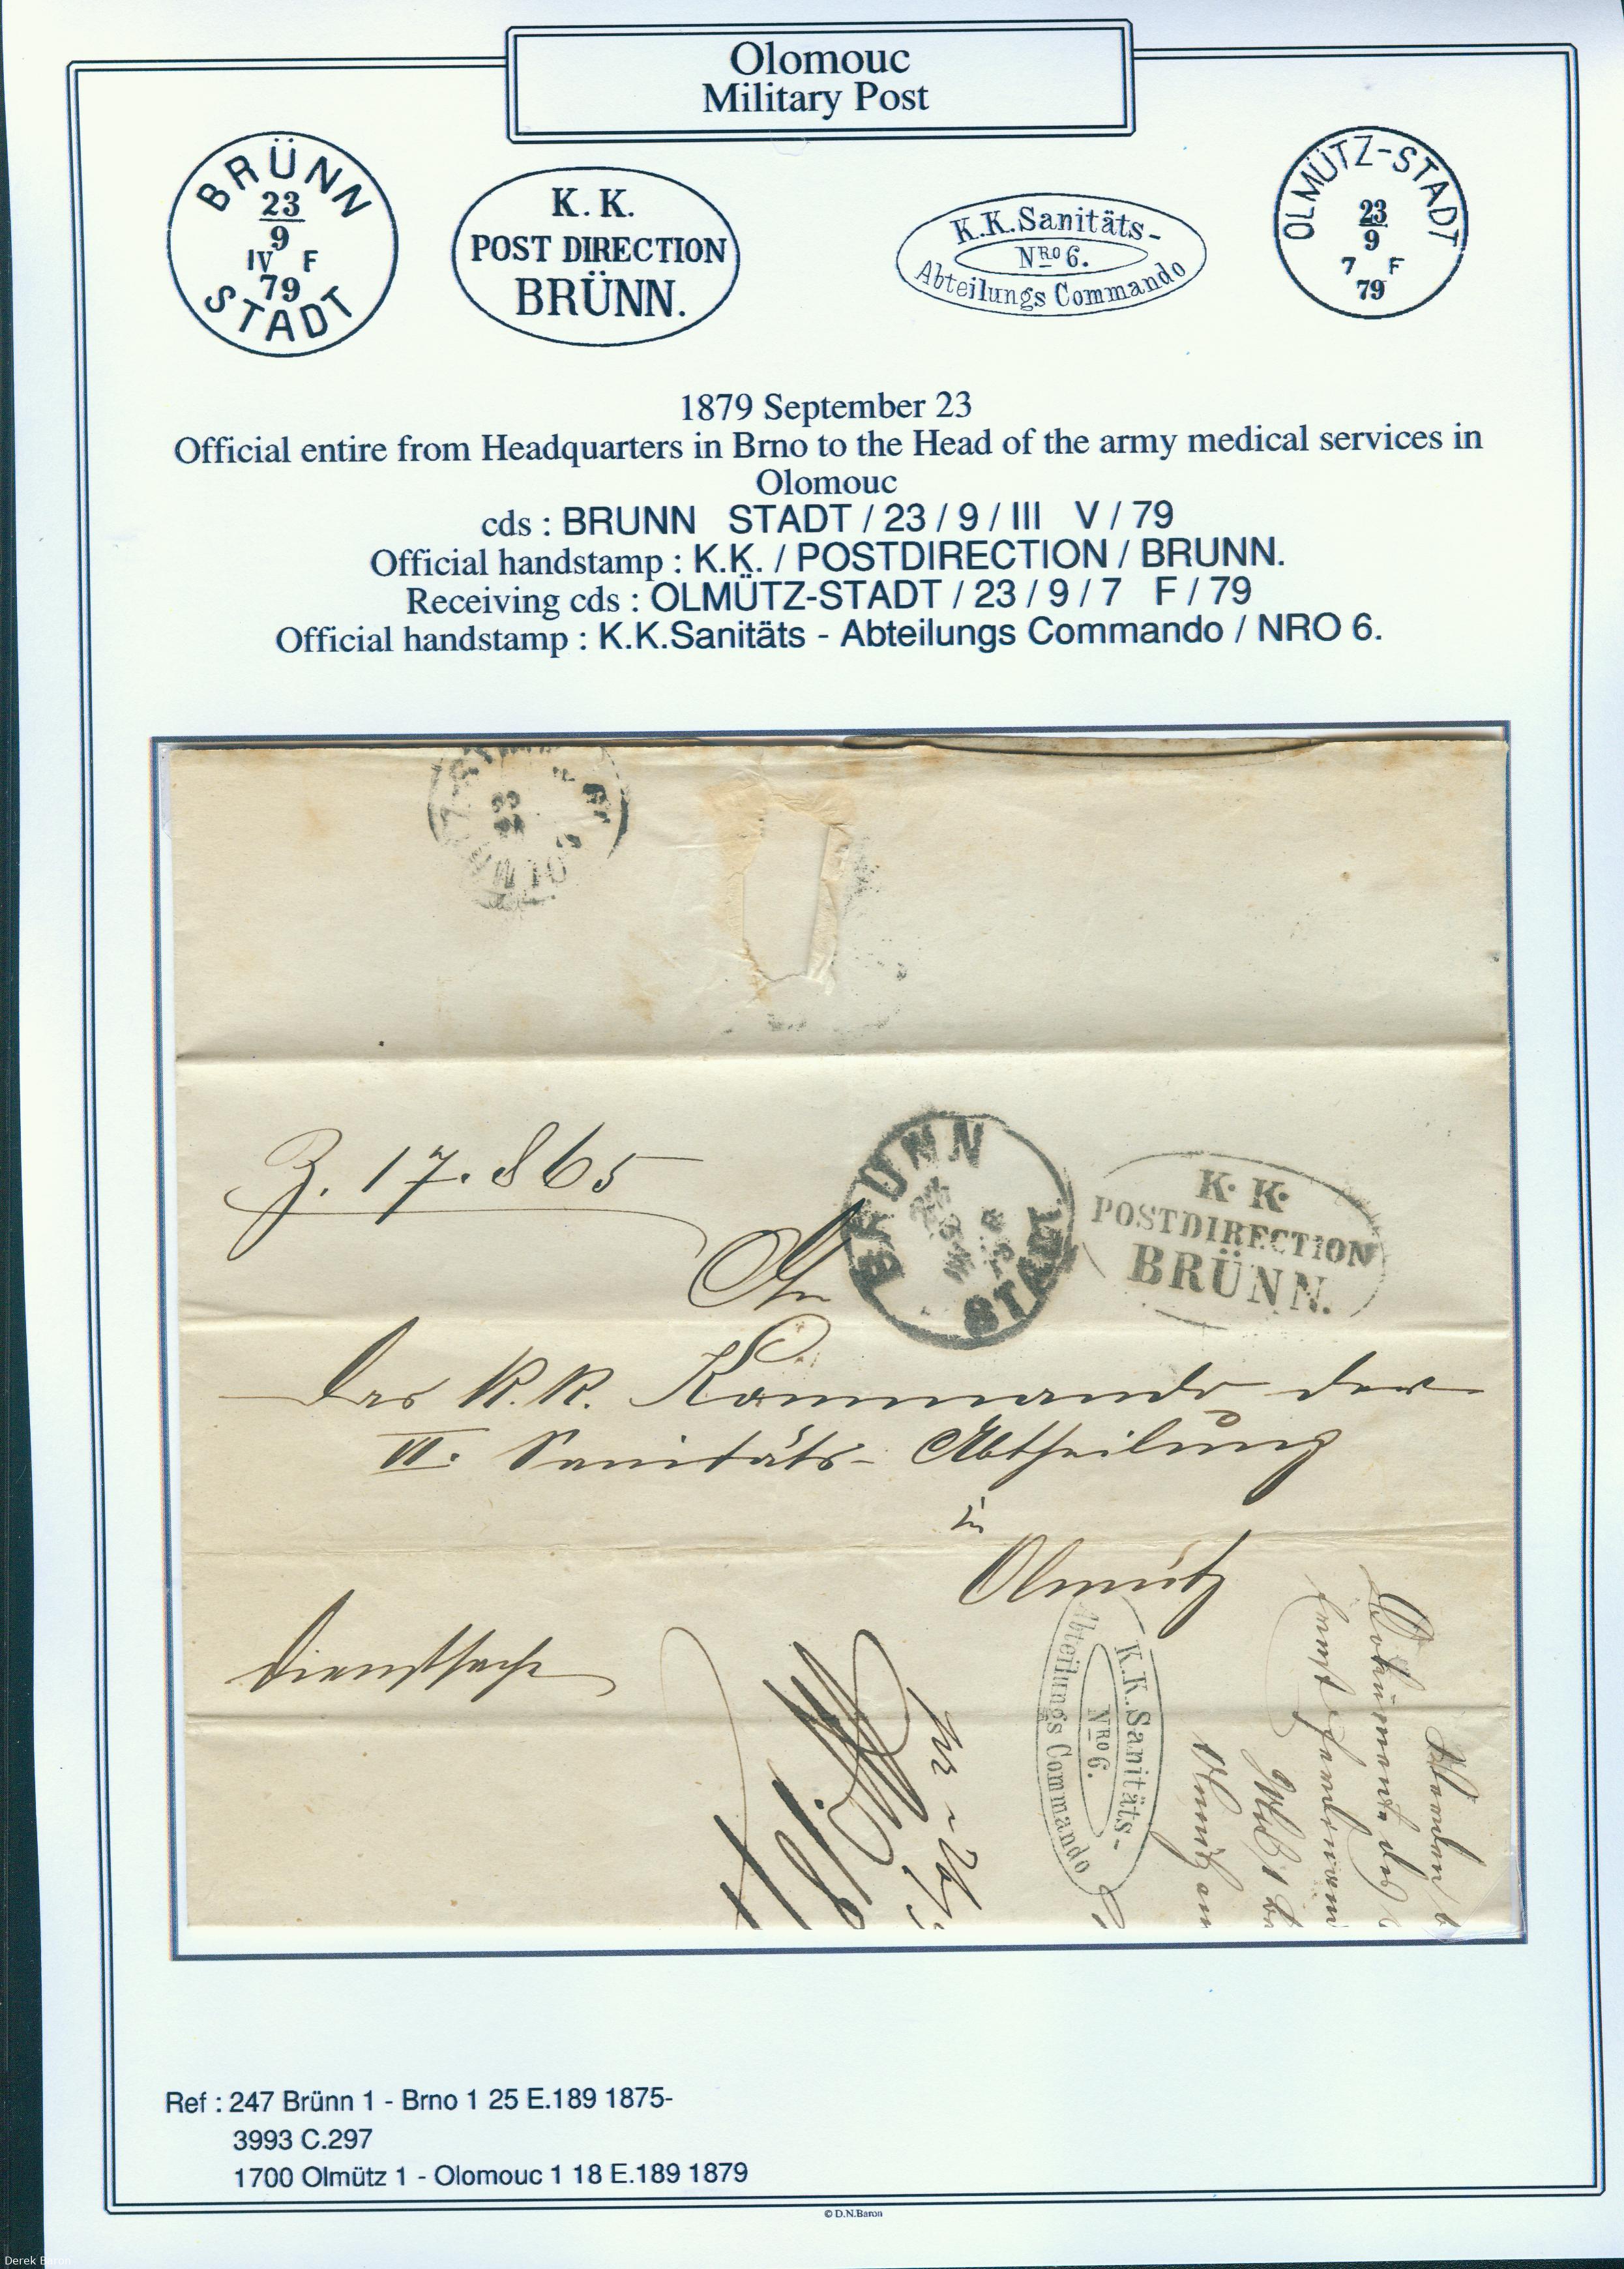 Olomouc
Military Post
BRÜNN
23
9
IV F
79
STADT
K. K.
POST DIRECTION
BRÜNN.
K.K.Sanitäts-
NRO 6.
Abteilungs Commando
OLMÜTZ-STADT
23
9
7 F
79
1879 September 23
Official entire from Headquarters in Brno to the Head of the army medical services in
Olomouc
cds : BRUNN STADT / 23 / 9 / III V / 79
Official handstamp : K.K. / POSTDIRECTION / BRUNN.
Receiving cds : OLMÜTZ-STADT / 23 / 9 / 7 F / 79
Official handstamp : K.K.Sanitäts - Abteilungs Commando / NRO 6.
23
Z. 17.865
BRÜNN
STADT
K. K.
POSTDIRECTION
BRÜNN.
An
das K.K. Kommando der
VI. Sanitäts-Abtheilung
in
Olmütz
Dienstsache
K.K.Sanitäts-
NRO 6.
Abteilungs Commando
Olmütz am
Ref : 247 Brünn 1 - Brno 1 25 E.189 1875-
3993 C.297
1700 Olmütz 1 - Olomouc 1 18 E.189 1879
© D.N.Baron
Derek Baron